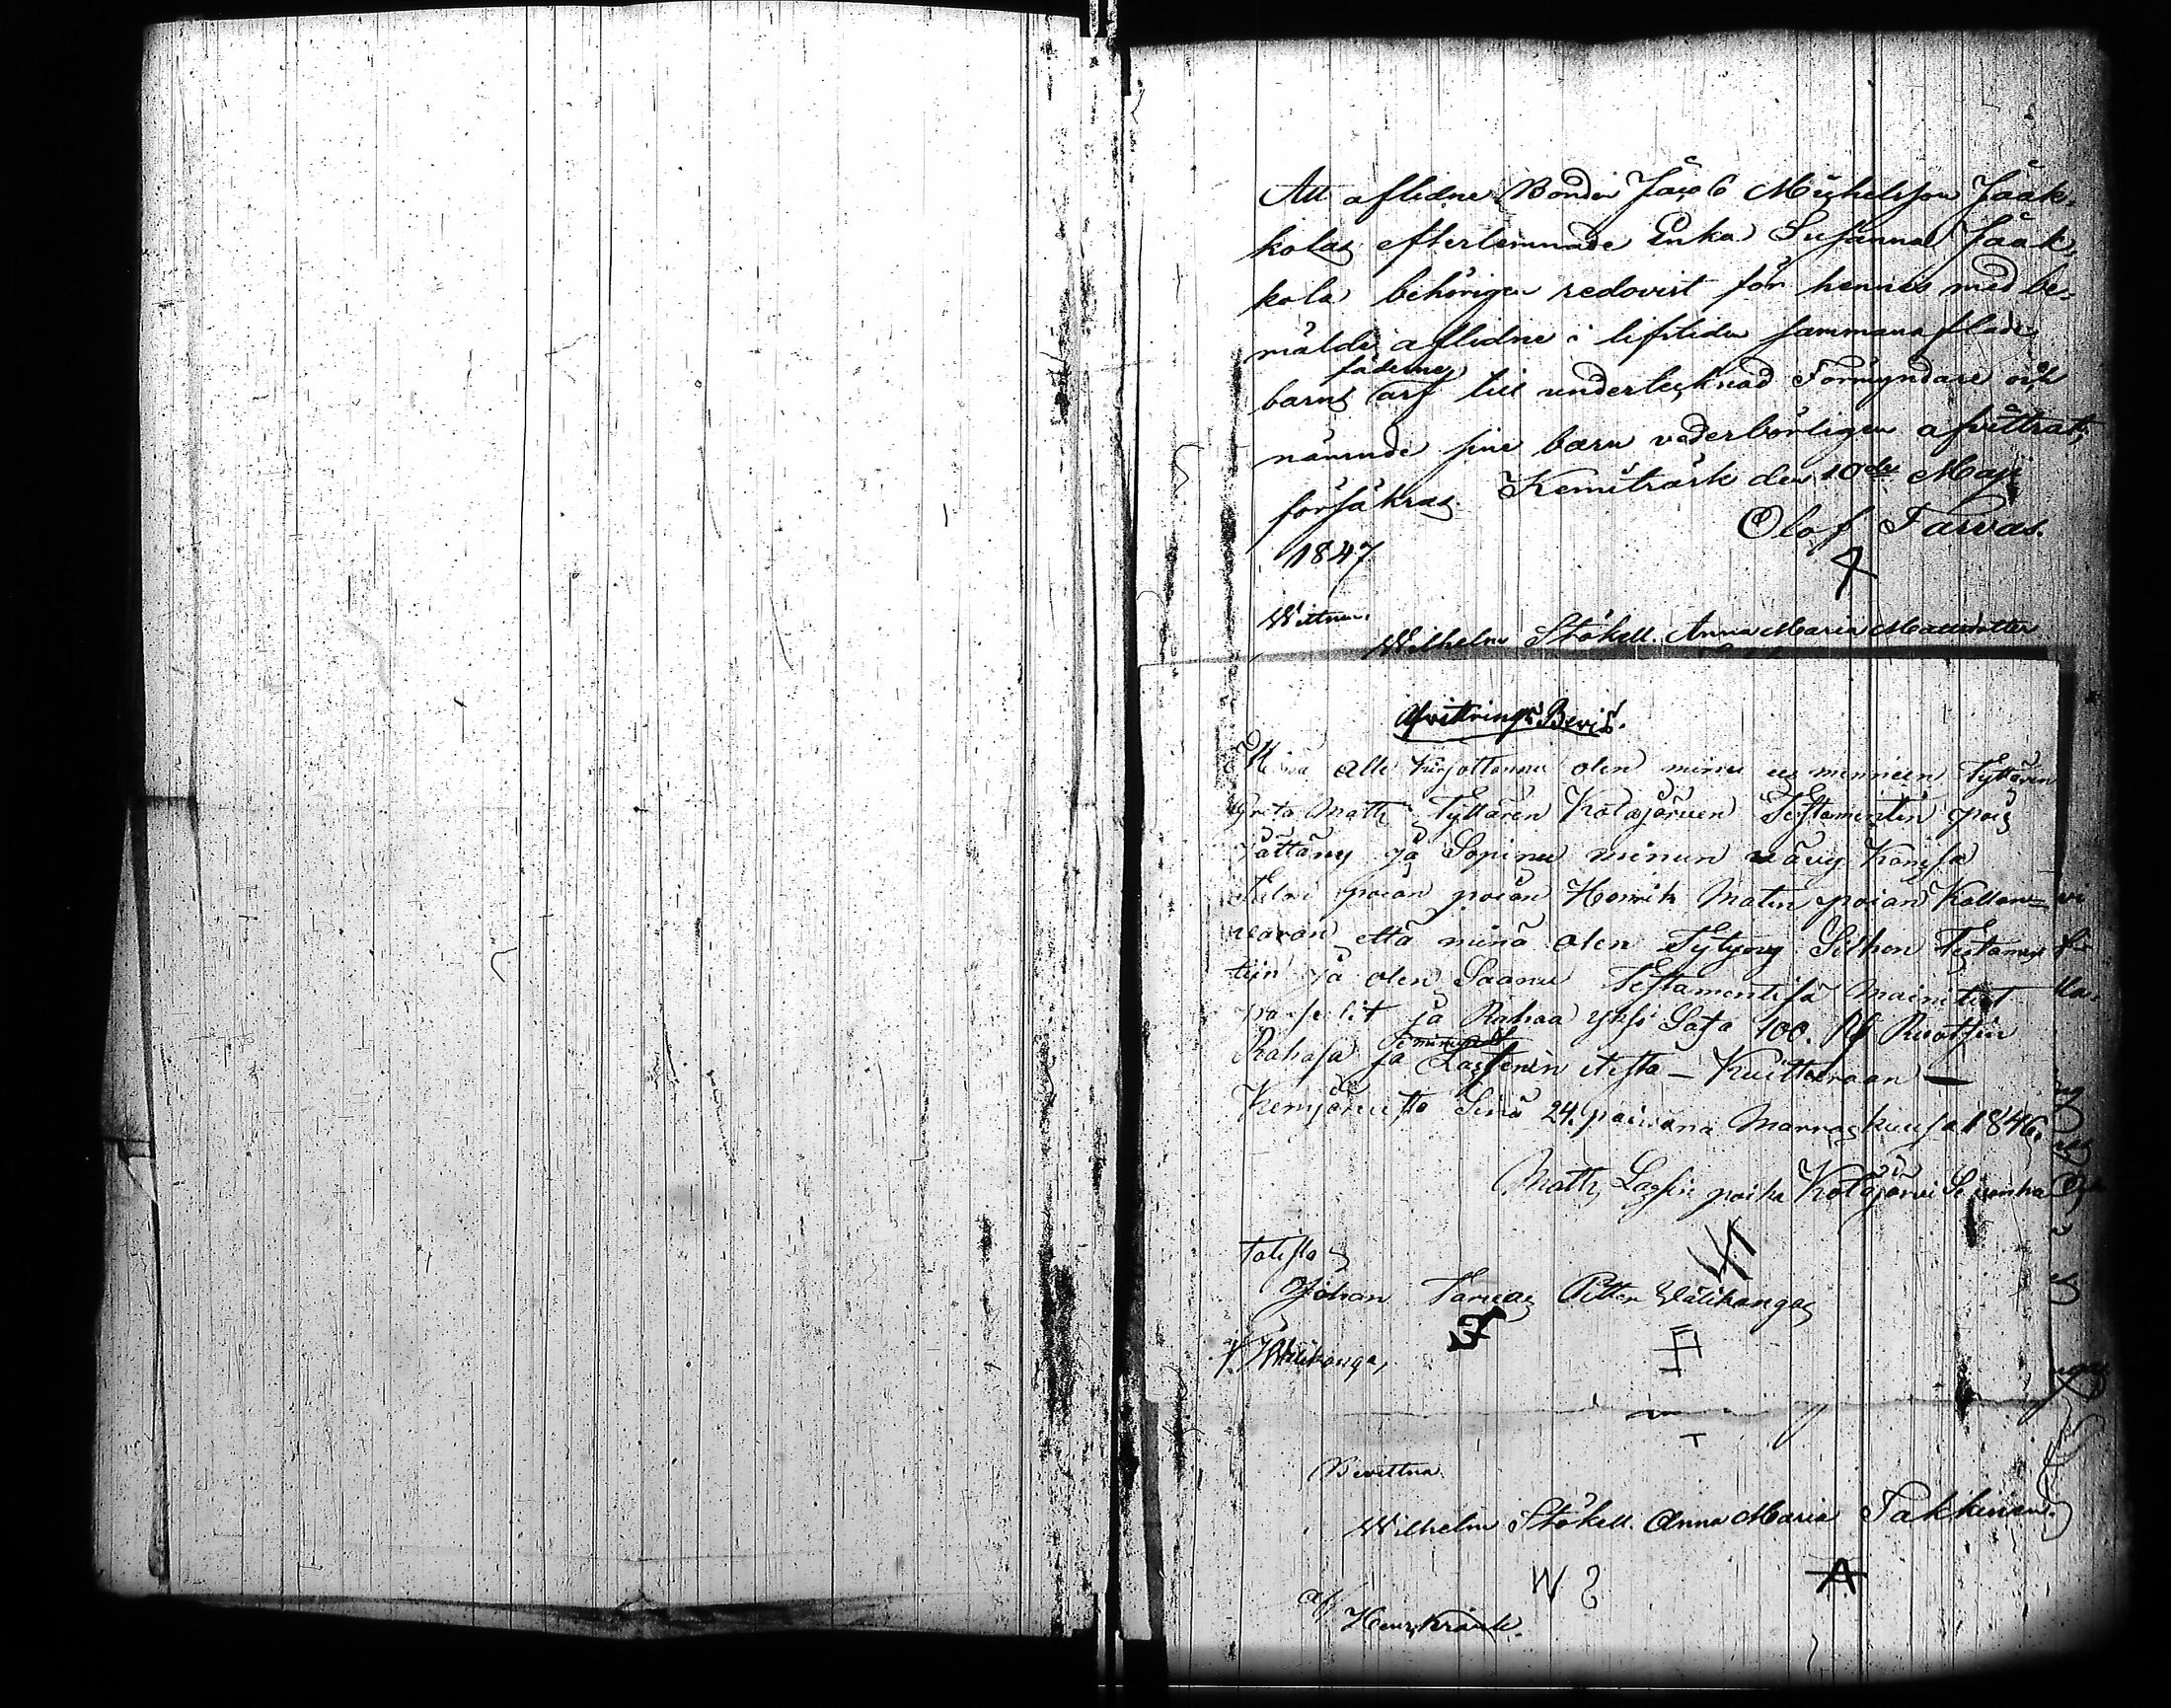 Att aflidne Bonden Jacob Michelsson Jaak-
kolas efterlemnade Enka Susanna Jaak-
kola behörigen redovist för hennes med be-
mälde aflidne i lifstiden sammanaflade
fäderne
barns arf till undertecknad Förmyndare och
nämnde sine barn vederbörligen afvittrat,
försäkras. Kemiträsk den 10de Maji
1847
Olof Tarvas.
Wittna.
Wilhelm Stökell. Anna Maria Mattsdotter
Afvittrings Bevis.
Minä alle kirjottannu olen minu es menneen Tyttären
Greta Matts Tyttären Kotajärven Testamentin pois
jättäny ja Sopinu minun wävy Kanssa
poian poian Henrik Matin poian Kallan=
vaaran että minä olen Tytyny Siihen Testamen
tiin ja olen Saanu Testamentisä Mainitut
ja Rahaa yksi Sata 100. Rf Ruottsin
Rahasa ja Lastenin etestä – Kuitteeraan —
Kemjärvestä Sinä 24. päivänä Marras kuusa 1846.
Matts Lassin poika Kotajärvi
Johan Tarvas Petter Välikangas
Välikangas
Bevittna
Wilhelm Stökell. Anna Maria Takkinen.
W S
A
af
Henr. Kräuk.